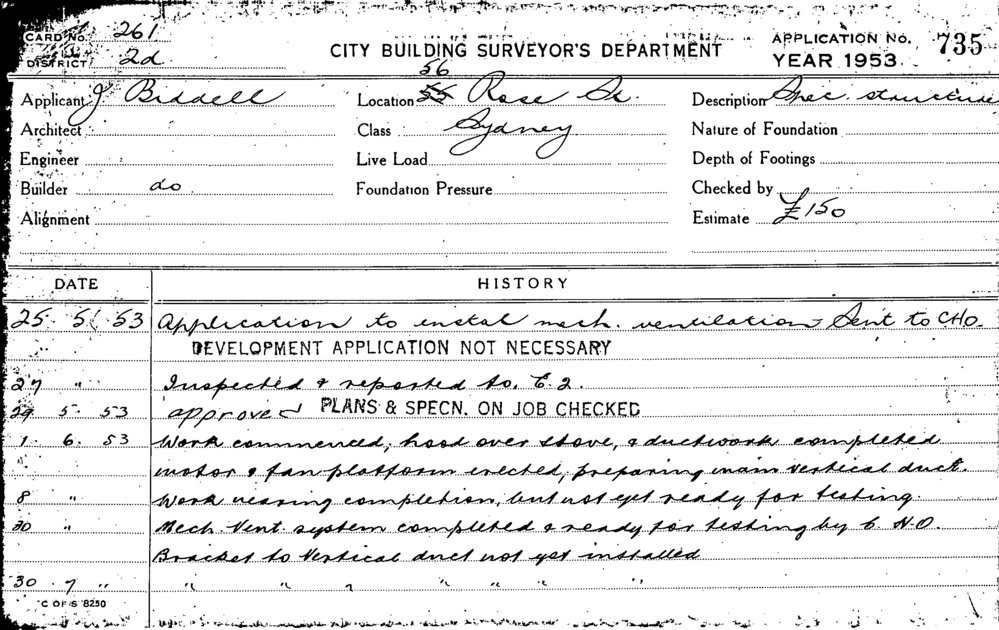 CARD No. 261
DISTRICT 2d
CITY BUILDING SURVEYOR'S DEPARTMENT
APPLICATION No. 735
YEAR 1953
Applicant J Biddell Location 55 56 Rose St. Description Spec. structure
Architect Class Sydney Nature of Foundation
Engineer Live Load Depth of Footings
Builder do Foundation Pressure Checked by
Alignment Estimate £150
DATE HISTORY
25. 5. 53 Application to instal mech. ventilation - Sent to CHO.
DEVELOPMENT APPLICATION NOT NECESSARY
27 " " Inspected & reported to. E. 2.
29 5. 53 approved PLANS & SPECN. ON JOB CHECKED
1. 6. 53 Work commenced; hood over stove, & ductwork completed
motor & fan platform erected, preparing main vertical duct.
8 " Work nearing completion, but not yet ready for testing.
30 " Mech. Vent. system completed & ready for testing by C. H. O.
Bracket to Vertical duct not yet installed
30 . 7 " " " " " " " "
C OF S 8250